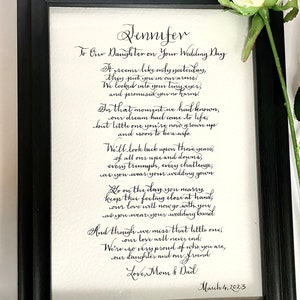 Jennifer
To Our Daughter on Your Wedding Day
It seems like only yesterday,
they put you in our arms
We looked into your tiny eyes,
and promised you no harm
In that moment we had known,
our dream had come to life,
but little one you're now grown up
and soon to be a wife
We'll look back upon those years,
of all our ups and downs,
every triumph, every challenge,
as you wear your wedding gown
So on the day you marry,
keep this feeling close at hand,
our love will now go with you,
as you wear your wedding band
And though we miss that little one,
our love will never end.
We're so very proud of who you are,
our daughter and our friend
Love, Mom & Dad
March 4, 2023